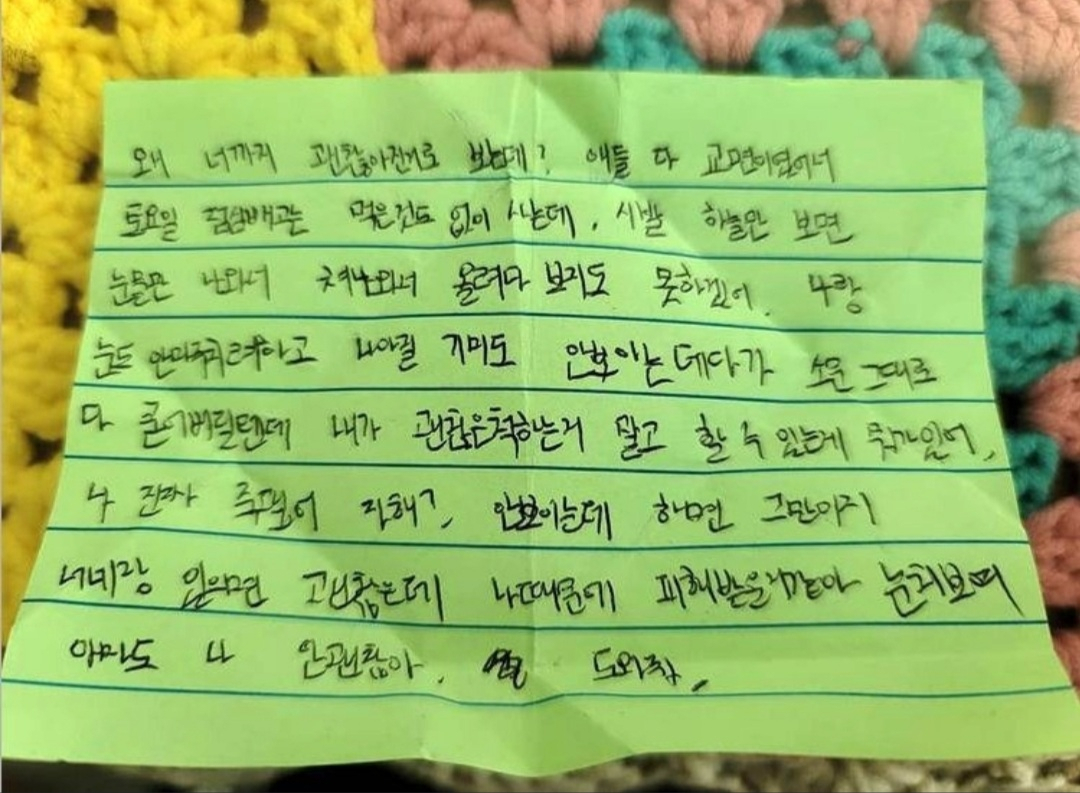 왜 너까지 괜찮아진거로 보는데? 애들 다
토요일 점심배고는 먹은것도 없이 사는데, 시발 하늘만 보면
눈물만 나와서 쳐나와서 올려다 보지도 못하겠어. 나랑
눈도 안마주치려하고 나아질 기미도 안보이는데다가 소문 그대로
다 믿어버릴텐데 내가 괜찮은척하는거 말고 할 수 있는게 뭐가있어,
나 진짜 죽겠어 자해?, 안보이는데 하면 그만이지
너네랑 있으면 괜찮은데 나때문에 피해받을거같아 눈치보며
아마도 나 안괜찮아. 도와줘,